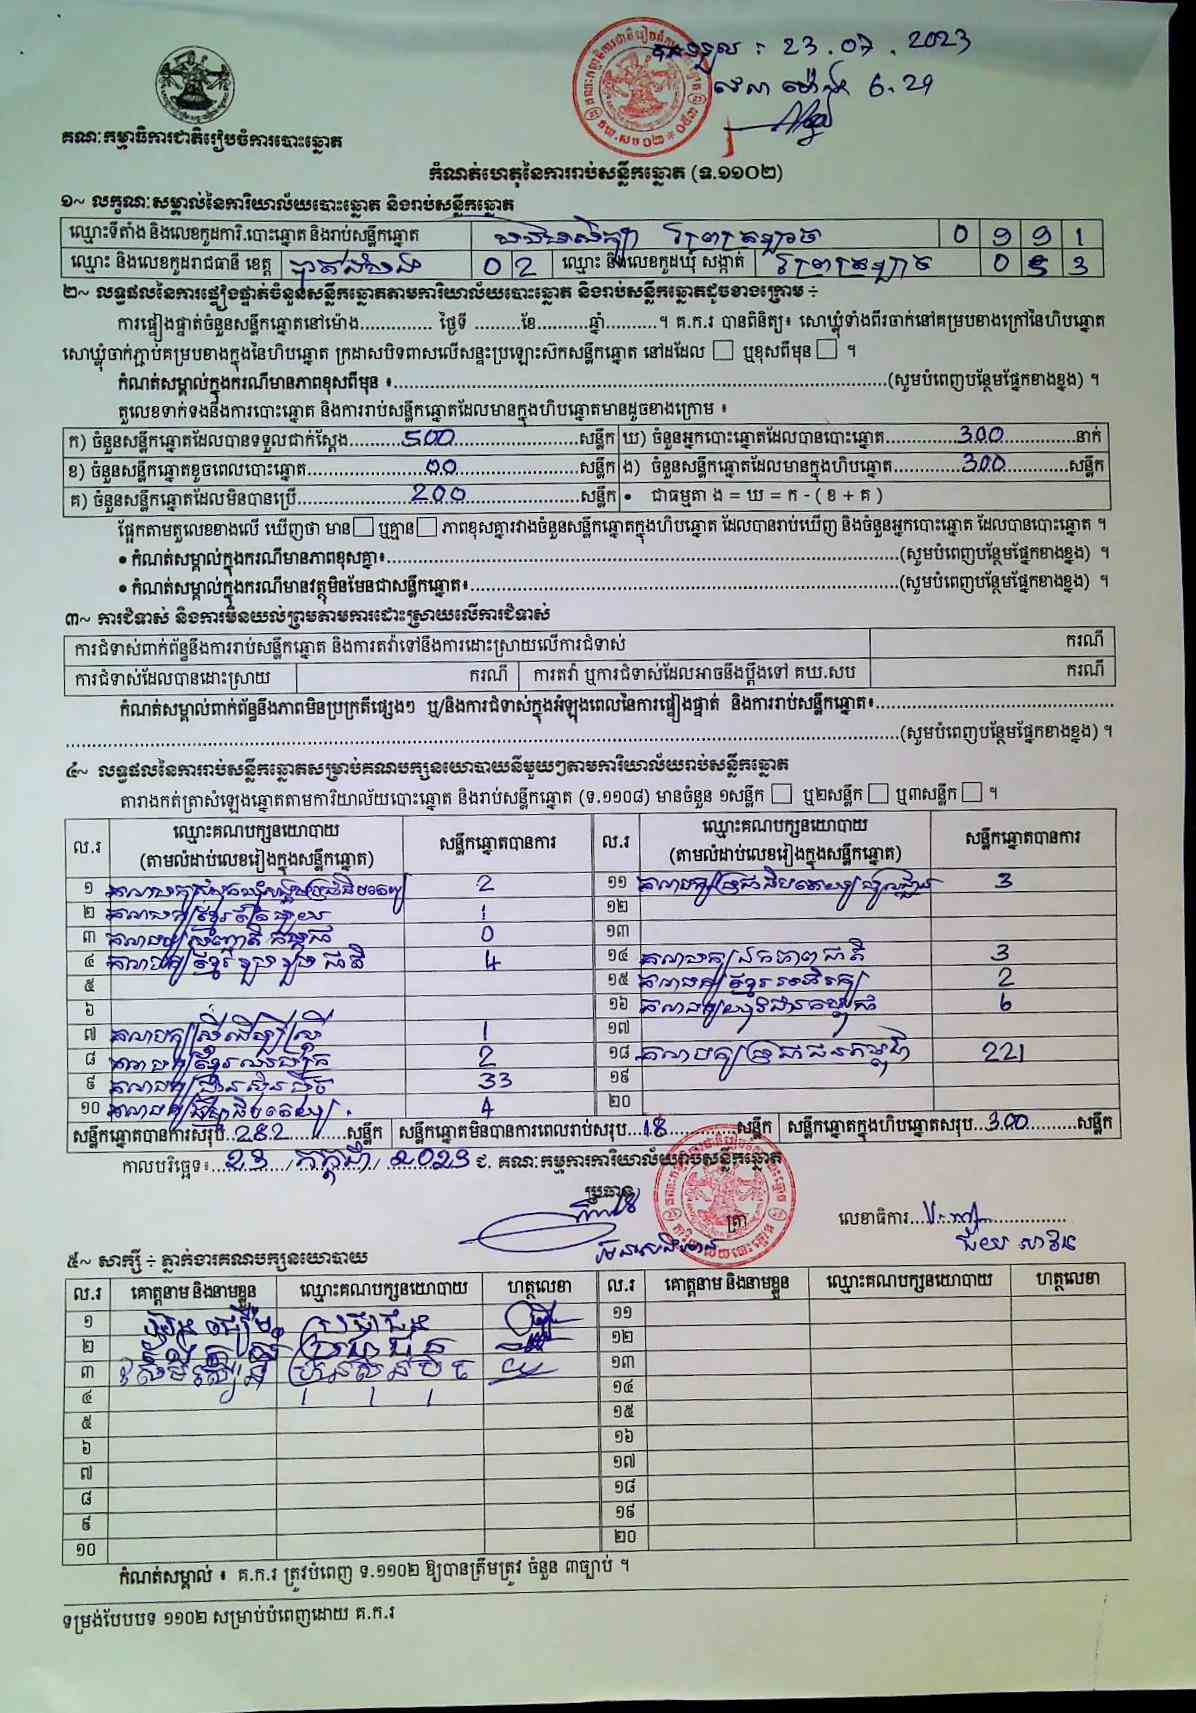 បានទទួល : 23.07.2023
វេលា ម៉ោង 6.29
គណៈកម្មាធិការជាតិរៀបចំការបោះឆ្នោត
កំណត់ហេតុនៃការរាប់សន្លឹកឆ្នោត (ទ.១១០២)
១~ លក្ខណៈសម្គាល់នៃការិយាល័យបោះឆ្នោត និងរាប់សន្លឹកឆ្នោត
ឈ្មោះទីតាំង និងលេខកូដការិ.បោះឆ្នោត និងរាប់សន្លឹកឆ្នោត 0 9 9 1
ឈ្មោះ និងលេខកូដរាជធានី ខេត្ត បាត់ដំបង 0 2 ឈ្មោះ និងលេខកូដឃុំ សង្កាត់ 0 5 3
២~ លទ្ធផលនៃការផ្ទៀងផ្ទាត់ចំនួនសន្លឹកឆ្នោតតាមការិយាល័យបោះឆ្នោត និងរាប់សន្លឹកឆ្នោតដូចខាងក្រោម ÷
ការផ្ទៀងផ្ទាត់ចំនួនសន្លឹកឆ្នោតនៅម៉ោង.............. ថ្ងៃទី .........ខែ..........ឆ្នាំ..........។ គ.ក.រ បានពិនិត្យ៖ សោឃ្លុំទាំងពីរចាក់នៅគម្របខាងក្រៅនៃហិបឆ្នោត
សោឃ្លុំចាក់ភ្ជាប់គម្របខាងក្នុងនៃហិបឆ្នោត ក្រដាសបិទពាសលើសន្ទះប្រឡោះស៊កសន្លឹកឆ្នោត នៅដដែល □ ឬខុសពីមុន □ ។
កំណត់សម្គាល់ក្នុងករណីមានភាពខុសពីមុន ៖..........(សូមបំពេញបន្ថែមផ្នែកខាងខ្នង) ។
តួលេខទាក់ទងនឹងការបោះឆ្នោត និងការរាប់សន្លឹកឆ្នោតដែលមានក្នុងហិបឆ្នោតមានដូចខាងក្រោម ៖
ក) ចំនួនសន្លឹកឆ្នោតដែលបានទទួលជាក់ស្តែង.........500.........សន្លឹក ឃ) ចំនួនអ្នកបោះឆ្នោតដែលបានបោះឆ្នោត.........300.........នាក់
ខ) ចំនួនសន្លឹកឆ្នោតខូចពេលបោះឆ្នោត.........00.........សន្លឹក ង) ចំនួនសន្លឹកឆ្នោតដែលមានក្នុងហិបឆ្នោត.........300.........សន្លឹក
គ) ចំនួនសន្លឹកឆ្នោតដែលមិនបានប្រើ.........200.........សន្លឹក • ជាធម្មតា ង = ឃ = ក - ( ខ + គ )
ផ្អែកតាមតួលេខខាងលើ ឃើញថា មាន□ ឬគ្មាន□ ភាពខុសគ្នារវាងចំនួនសន្លឹកឆ្នោតក្នុងហិបឆ្នោត ដែលបានរាប់ឃើញ និងចំនួនអ្នកបោះឆ្នោត ដែលបានបោះឆ្នោត ។
• កំណត់សម្គាល់ក្នុងករណីមានភាពខុសគ្នា៖..........(សូមបំពេញបន្ថែមផ្នែកខាងខ្នង) ។
• កំណត់សម្គាល់ក្នុងករណីមានវត្ថុមិនមែនជាសន្លឹកឆ្នោត៖..........(សូមបំពេញបន្ថែមផ្នែកខាងខ្នង) ។
៣~ ការជំទាស់ និងការមិនយល់ព្រមតាមការដោះស្រាយលើការជំទាស់
ការជំទាស់ពាក់ព័ន្ធនឹងការរាប់សន្លឹកឆ្នោត និងការតវ៉ាទៅនឹងការដោះស្រាយលើការជំទាស់ ករណី
ការជំទាស់ដែលបានដោះស្រាយ ករណី ការតវ៉ា ឬការជំទាស់ដែលអាចនឹងប្តឹងទៅ គឃ.សប ករណី
កំណត់សម្គាល់ពាក់ព័ន្ធនឹងភាពមិនប្រក្រតីផ្សេងៗ ឬ/និងការជំទាស់ក្នុងអំឡុងពេលនៃការផ្ទៀងផ្ទាត់ និងការរាប់សន្លឹកឆ្នោត៖..........
..........(សូមបំពេញបន្ថែមផ្នែកខាងខ្នង) ។
៤~ លទ្ធផលនៃការរាប់សន្លឹកឆ្នោតសម្រាប់គណបក្សនយោបាយនីមួយៗតាមការិយាល័យរាប់សន្លឹកឆ្នោត
តារាងកត់ត្រាសំឡេងឆ្នោតតាមការិយាល័យបោះឆ្នោត និងរាប់សន្លឹកឆ្នោត (ទ.១១០៨) មានចំនួន ១សន្លឹក □ ឬ២សន្លឹក □ ឬ៣សន្លឹក □ ។
ល.រ ឈ្មោះគណបក្សនយោបាយ (តាមលំដាប់លេខរៀងក្នុងសន្លឹកឆ្នោត) សន្លឹកឆ្នោតបានការ ល.រ ឈ្មោះគណបក្សនយោបាយ (តាមលំដាប់លេខរៀងក្នុងសន្លឹកឆ្នោត) សន្លឹកឆ្នោតបានការ
១ គណបក្ស 2 ១១ គណបក្ស 3
២ គណបក្សខ្មែរ 1 ១២
៣ គណបក្ស 0 ១៣
៤ គណបក្សខ្មែររួបរួមជាតិ 4 ១៤ គណបក្សឯកភាពជាតិ 3
៥ ១៥ គណបក្សខ្មែរ 2
៦ ១៦ គណបក្សយុវជនកម្ពុជា 6
៧ គណបក្សស្រីដើម្បីស្រី 1 ១៧
៨ គណបក្សខ្មែរ 2 ១៨ គណបក្សប្រជាជនកម្ពុជា 221
៩ គណបក្សហ៊្វុនស៊ិនប៉ិច 33 ១៩
១០ គណបក្ស 4 ២០
សន្លឹកឆ្នោតបានការសរុប..282.........សន្លឹក សន្លឹកឆ្នោតមិនបានការពេលរាប់សរុប...18.........សន្លឹក សន្លឹកឆ្នោតក្នុងហិបឆ្នោតសរុប..300.........សន្លឹក
កាលបរិច្ឆេទ៖..23../កក្កដា/..2023 ជ. គណៈកម្មការការិយាល័យរាប់សន្លឹកឆ្នោត
ប្រធាន
ត្រា លេខាធិការ
៥~ សាក្សី ÷ ភ្នាក់ងារគណបក្សនយោបាយ
ល.រ គោត្តនាម និងនាមខ្លួន ឈ្មោះគណបក្សនយោបាយ ហត្ថលេខា ល.រ គោត្តនាម និងនាមខ្លួន ឈ្មោះគណបក្សនយោបាយ ហត្ថលេខា
១ ប្រជាជន ១១
២ ប្រជាជន ១២
៣ ហ៊្វុនស៊ិនប៉ិច ១៣
៤ ១៤
៥ ១៥
៦ ១៦
៧ ១៧
៨ ១៨
៩ ១៩
១០ ២០
កំណត់សម្គាល់ ៖ គ.ក.រ ត្រូវបំពេញ ទ.១១០២ ឱ្យបានត្រឹមត្រូវ ចំនួន ៣ច្បាប់ ។
ទម្រង់បែបបទ ១១០២ សម្រាប់បំពេញដោយ គ.ក.រ